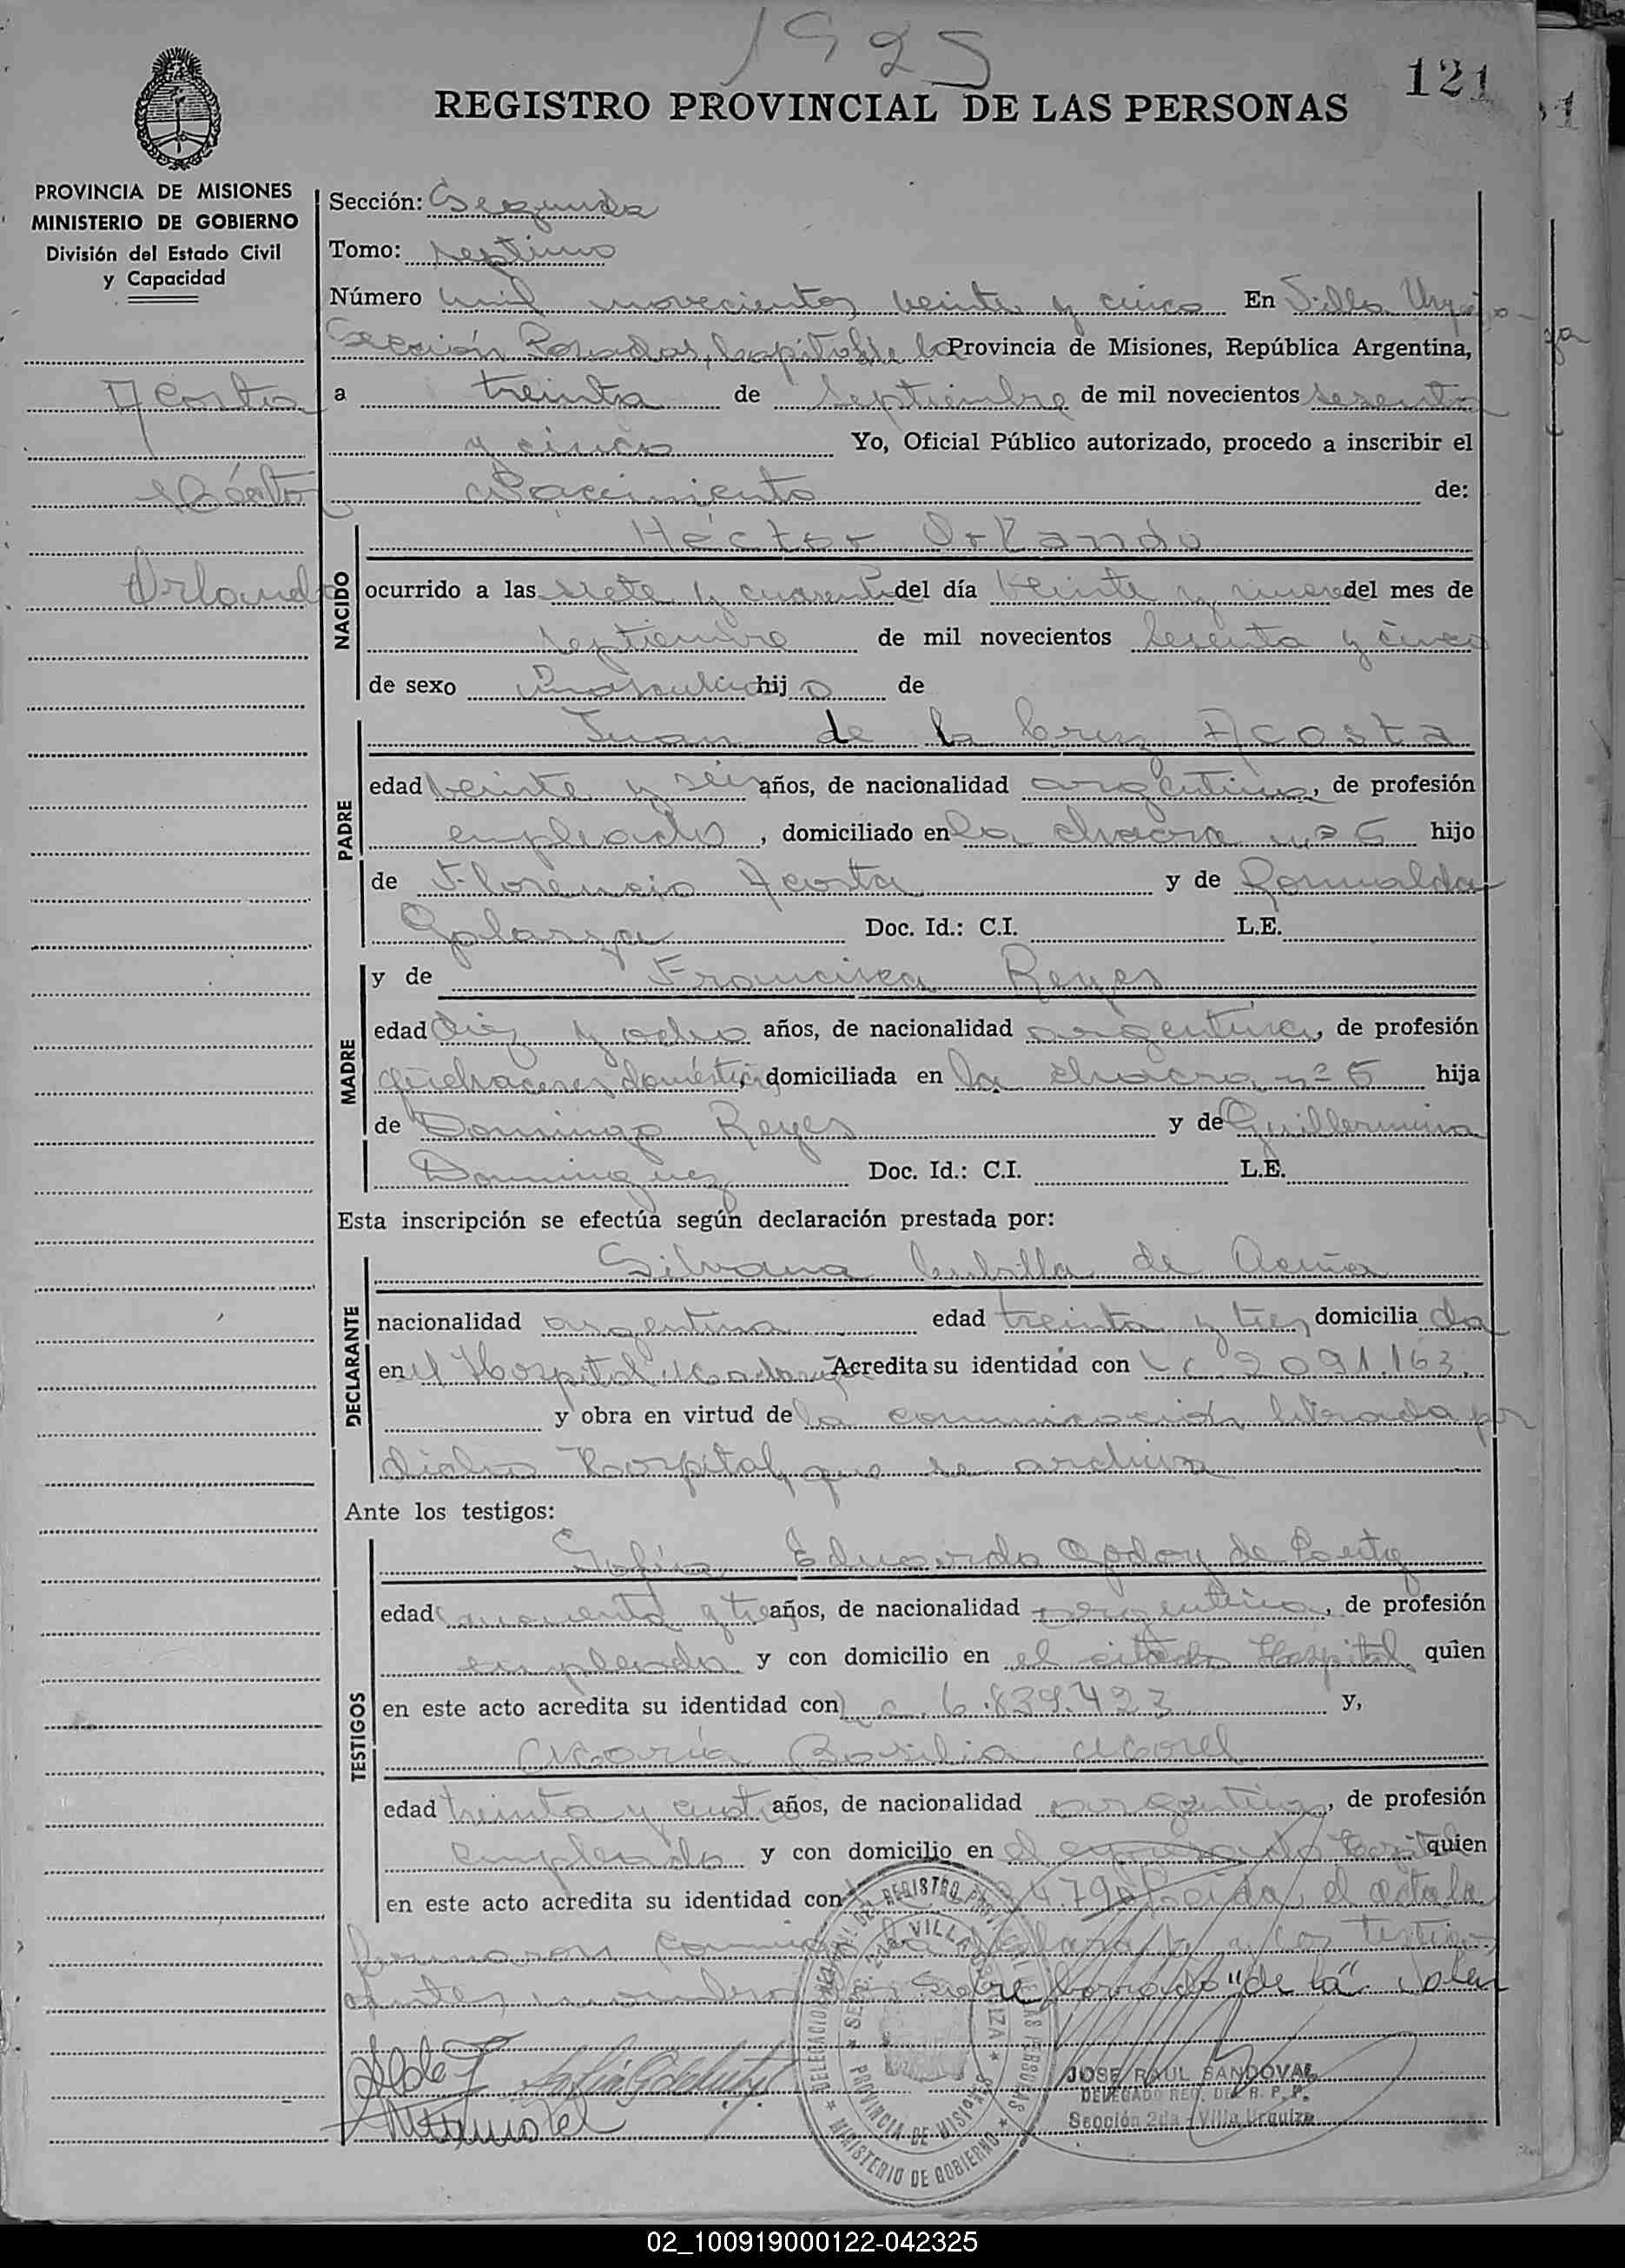 1925
121
REGISTRO PROVINCIAL DE LAS PERSONAS
PROVINCIA DE MISIONES
MINISTERIO DE GOBIERNO
División del Estado Civil
y Capacidad
Acosta
Héctor
Orlando
Sección: Segunda
Tomo: septimo
Número mil novecientos veinte y cinco En Villa Urquiza
Sección Posadas, Capital de la Provincia de Misiones, República Argentina,
a treinta de septiembre de mil novecientos sesenta
y cinco Yo, Oficial Público autorizado, procedo a inscribir el
Nacimiento de:
NACIDO
Héctor Orlando
ocurrido a las siete y cuarenta del día veinte y nueve del mes de
septiembre de mil novecientos sesenta y cinco
de sexo masculino hijo de
PADRE
Juan de la Cruz Acosta
edad veinte y seis años, de nacionalidad argentino, de profesión
empleado, domiciliado en la chacra nº 6 hijo
de Florencio Acosta y de Romualda
Golarza Doc. Id.: C.I. L.E.
MADRE
y de Francisca Reyes
edad diez y ocho años, de nacionalidad argentina, de profesión
quehaceres domésticos, domiciliada en la chacra nº 6 hija
de Domingo Reyes y de Guillermina
Dominguez Doc. Id.: C.I. L.E.
Esta inscripción se efectúa según declaración prestada por:
DECLARANTE
Silvana Cubilla de Acuña
nacionalidad argentina edad treinta y tres domiciliada
en el Hospital Madariaga Acredita su identidad con L c 2.091.163.
y obra en virtud de la comunicación librada por
dicho Hospital, que se archiva
Ante los testigos:
TESTIGOS
Sofía Eduarda Godoy de
edad cuarenta y tres años, de nacionalidad argentina, de profesión
empleada y con domicilio en el citado Hospital quien
en este acto acredita su identidad con L c. 6.839.423 y,
María Basilia Morel
edad treinta y cuatro años, de nacionalidad argentina, de profesión
empleada y con domicilio en el expresado Hospital quien
en este acto acredita su identidad con Leida el acta la
firmaron conmigo la declarante y los testigos
antes nombrados Sobre borrado "de la" vale
JOSE RAUL SANDOVAL
DELEGADO REG. DEL R. P. P.
Sección 2da - Villa Urquiza
DELEGACION DEL REGISTRO PROVINCIAL DE LAS PERSONAS
SECC. 2da VILLA URQUIZA
PROVINCIA DE MISIONES
MINISTERIO DE GOBIERNO
02_100919000122-042325